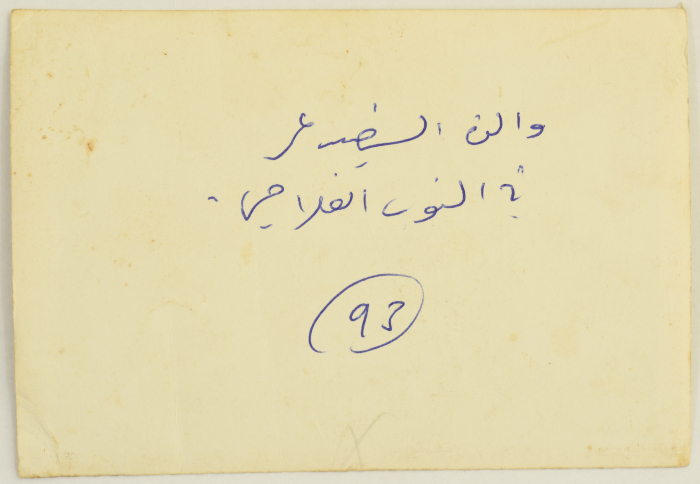 والدة السيد عمر
في الثوب الفلاحي.
93